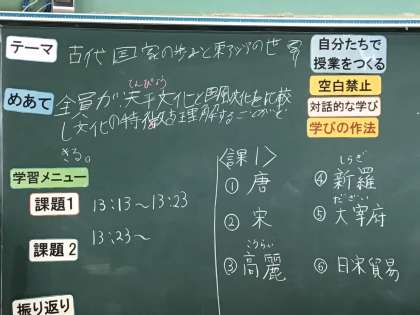 テーマ
古代国家の歩みと東アジアの世界
自分たちで
授業をつくる
空白禁止
対話的な学び
学びの作法
めあて
てんぴょう
全員が、天平文化と国風文化を比較
し文化の特徴を理解することがで
きる。
学習メニュー
課題1
13:13~13:23
課題2
13:23~
振り返り
〈課1〉
①唐
②宋
こうらい
③高麗
しらぎ
④新羅
だざい
⑤大宰府
⑥日宋貿易